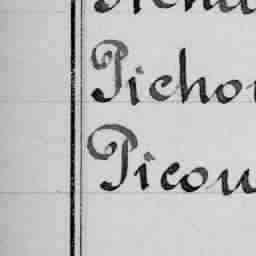 Picho
Picou